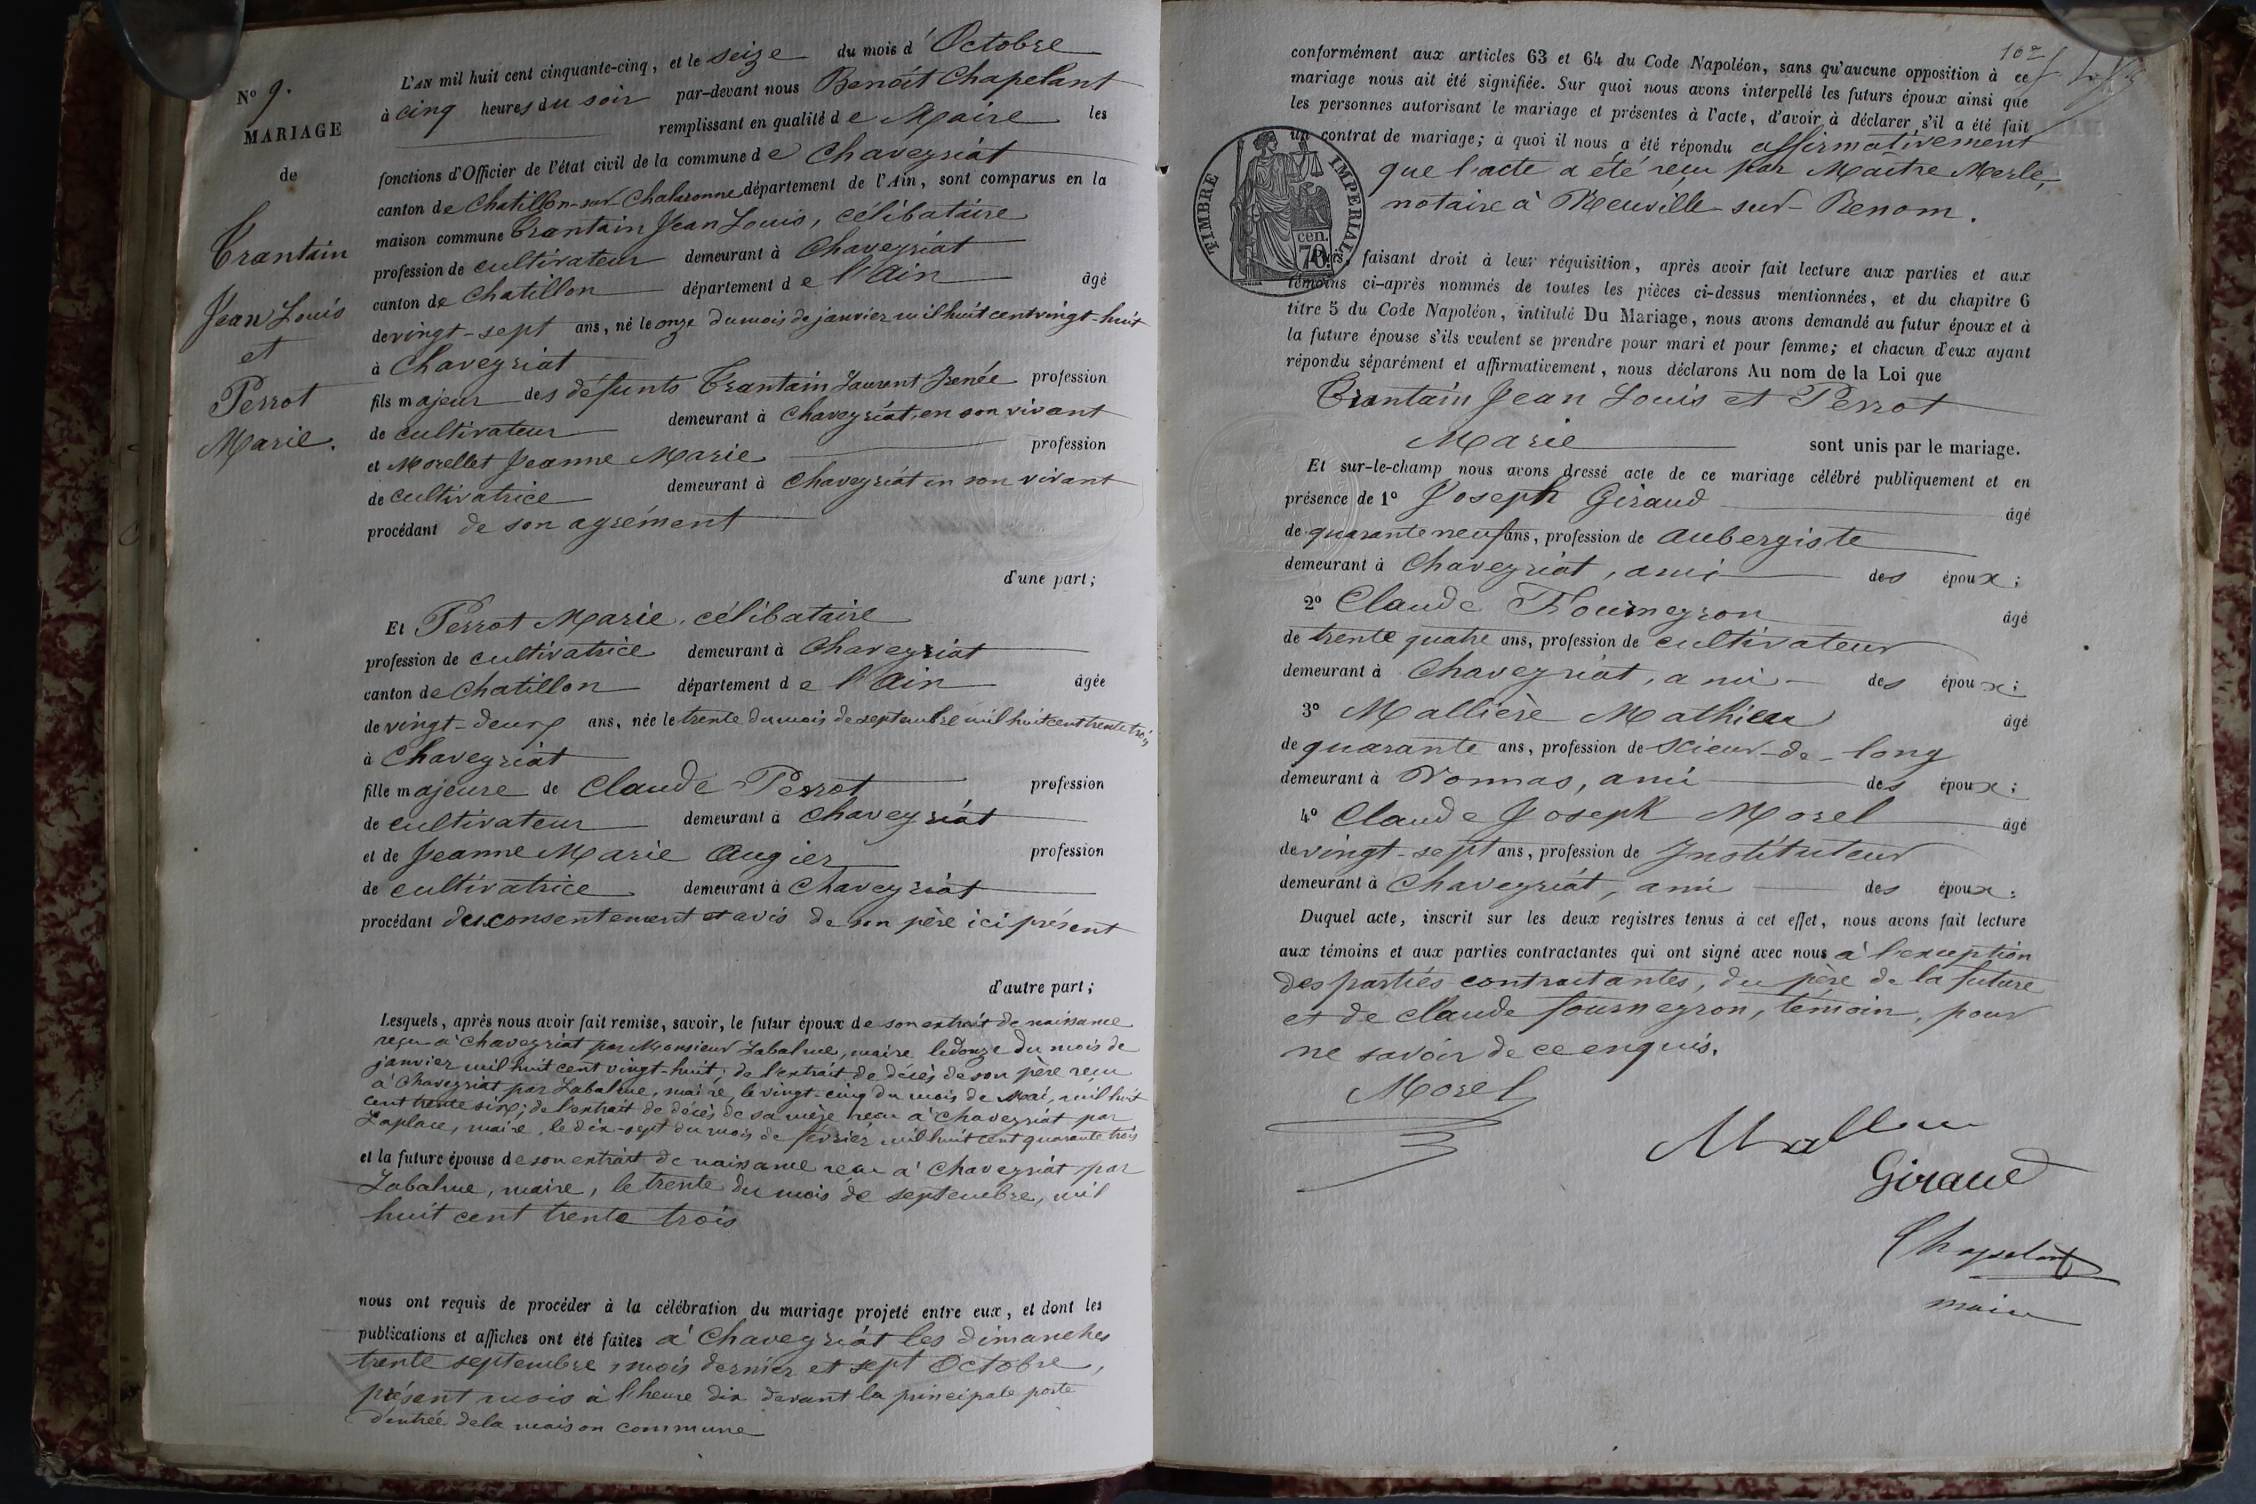 N° 9.
MARIAGE
de
Trantain
Jean Louis
et
Perrot
Marie.
L'AN mil huit cent cinquante-cinq, et le seize du mois d'Octobre
à cinq heures du soir par-devant nous Benoît Chapelant
remplissant en qualité de Maire les
fonctions d'Officier de l'état civil de la commune de Chaveyriat
canton de Chatillon-sur-Chalaronne département de l'Ain, sont comparus en la
maison commune Trantain Jean Louis, célibataire
profession de cultivateur demeurant à Chaveyriat
canton de Chatillon département de l'Ain âgé
de vingt-sept ans, né le onze du mois de janvier mil huit cent vingt-huit
à Chaveyriat
fils majeur des défunts Trantain Laurent Irenée profession
de cultivateur demeurant à Chaveyriat, en son vivant
et Morellet Jeanne Marie profession
de cultivatrice demeurant à Chaveyriat en son vivant
procédant de son agrément
d'une part;
Et Perrot Marie, célibataire
profession de cultivatrice demeurant à Chaveyriat
canton de Chatillon département de l'Ain âgée
de vingt-deux ans, née le trente du mois de septembre mil huit cent trente trois
à Chaveyriat
fille majeure de Claude Perrot profession
de cultivateur demeurant à Chaveyriat
et de Jeanne Marie Augier profession
de cultivatrice demeurant à Chaveyriat
procédant du consentement et avis de son père ici présent
d'autre part;
Lesquels, après nous avoir fait remise, savoir, le futur époux de son extrait de naissance
reçu à Chaveyriat par Monsieur Labalme, maire le douze du mois de
janvier mil huit cent vingt-huit; de l'extrait de décès de son père reçu
à Chaveyriat par Labalme, maire, le vingt-cinq du mois de Mai, mil huit
cent trente six; de l'extrait de décès de sa mère reçu à Chaveyriat par
Laplace, maire, le dix-sept du mois de février mil huit cent quarante trois
et la future épouse de son extrait de naissance reçu à Chaveyriat par
Labalme, maire, le trente du mois de septembre, mil
huit cent trente trois
nous ont requis de procéder à la célébration du mariage projeté entre eux, et dont les
publications et affiches ont été faites à Chaveyriat les dimanches
trente septembre, mois dernier et sept Octobre,
présent mois à l'heure dix devant la principale porte
d'entrée de la maison commune
102
conformément aux articles 63 et 64 du Code Napoléon, sans qu'aucune opposition à ce
mariage nous ait été signifiée. Sur quoi nous avons interpellé les futurs époux ainsi que
les personnes autorisant le mariage et présentes à l'acte, d'avoir à déclarer s'il a été fait
un contrat de mariage; à quoi il nous a été répondu affirmativement
que l'acte a été reçu par Maître Merle,
notaire à Neuville-sur-Renom.
TIMBRE IMPERIAL
cen.
70
faisant droit à leur réquisition, après avoir fait lecture aux parties et aux
témoins ci-après nommés de toutes les pièces ci-dessus mentionnées, et du chapitre 6
titre 5 du Code Napoléon, intitulé Du Mariage, nous avons demandé au futur époux et à
la future épouse s'ils veulent se prendre pour mari et pour femme; et chacun d'eux ayant
répondu séparément et affirmativement, nous déclarons Au nom de la Loi que
Trantain Jean Louis et Perrot
Marie sont unis par le mariage.
Et sur-le-champ nous avons dressé acte de ce mariage célébré publiquement et en
présence de 1° Joseph Giraud âgé
de quarante neuf ans, profession de aubergiste
demeurant à Chaveyriat, ami des époux;
2° Claude Fourneyron âgé
de trente quatre ans, profession de cultivateur
demeurant à Chaveyriat, ami des époux;
3° Mallière Mathieu âgé
de quarante ans, profession de scieur-de-long
demeurant à Vonnas, ami des époux;
4° Claude Joseph Morel âgé
de vingt-sept ans, profession de Instituteur
demeurant à Chaveyriat, ami des époux.
Duquel acte, inscrit sur les deux registres tenus à cet effet, nous avons fait lecture
aux témoins et aux parties contractantes qui ont signé avec nous à l'exception
des parties contractantes, du père de la future
et de Claude fourneyron, témoin, pour
ne savoir de ce enquis.
Morel
Giraud
Chapelant
maire